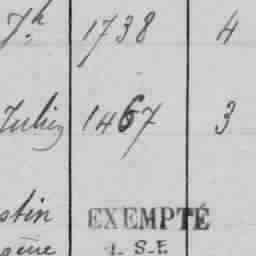 7h 1738 4
Julien 1467 3
stin EXEMPTÉ
gène 1. S-E